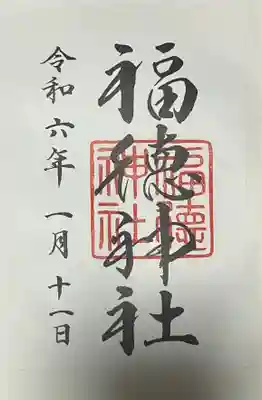 福徳神社
福德
神社
令和六年 一月 十一日